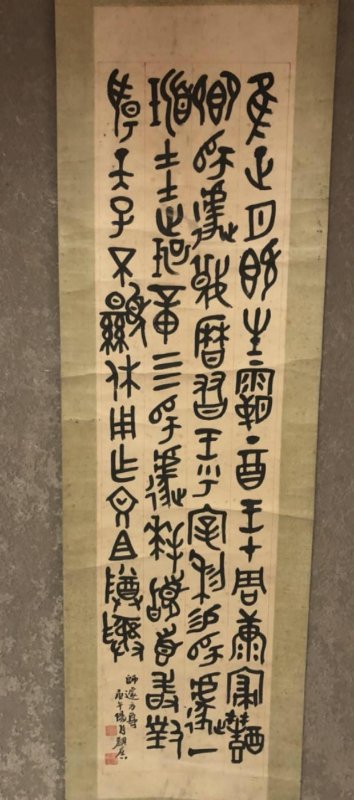 隹正月既生霸丁酉王才周康寢醴
師遽蔑曆友王乎宰利易師遽
圭環章三師遽拜稽首敢對
揚天子不顯休用乍文且尊彝
師遽方尊
庚午陽月